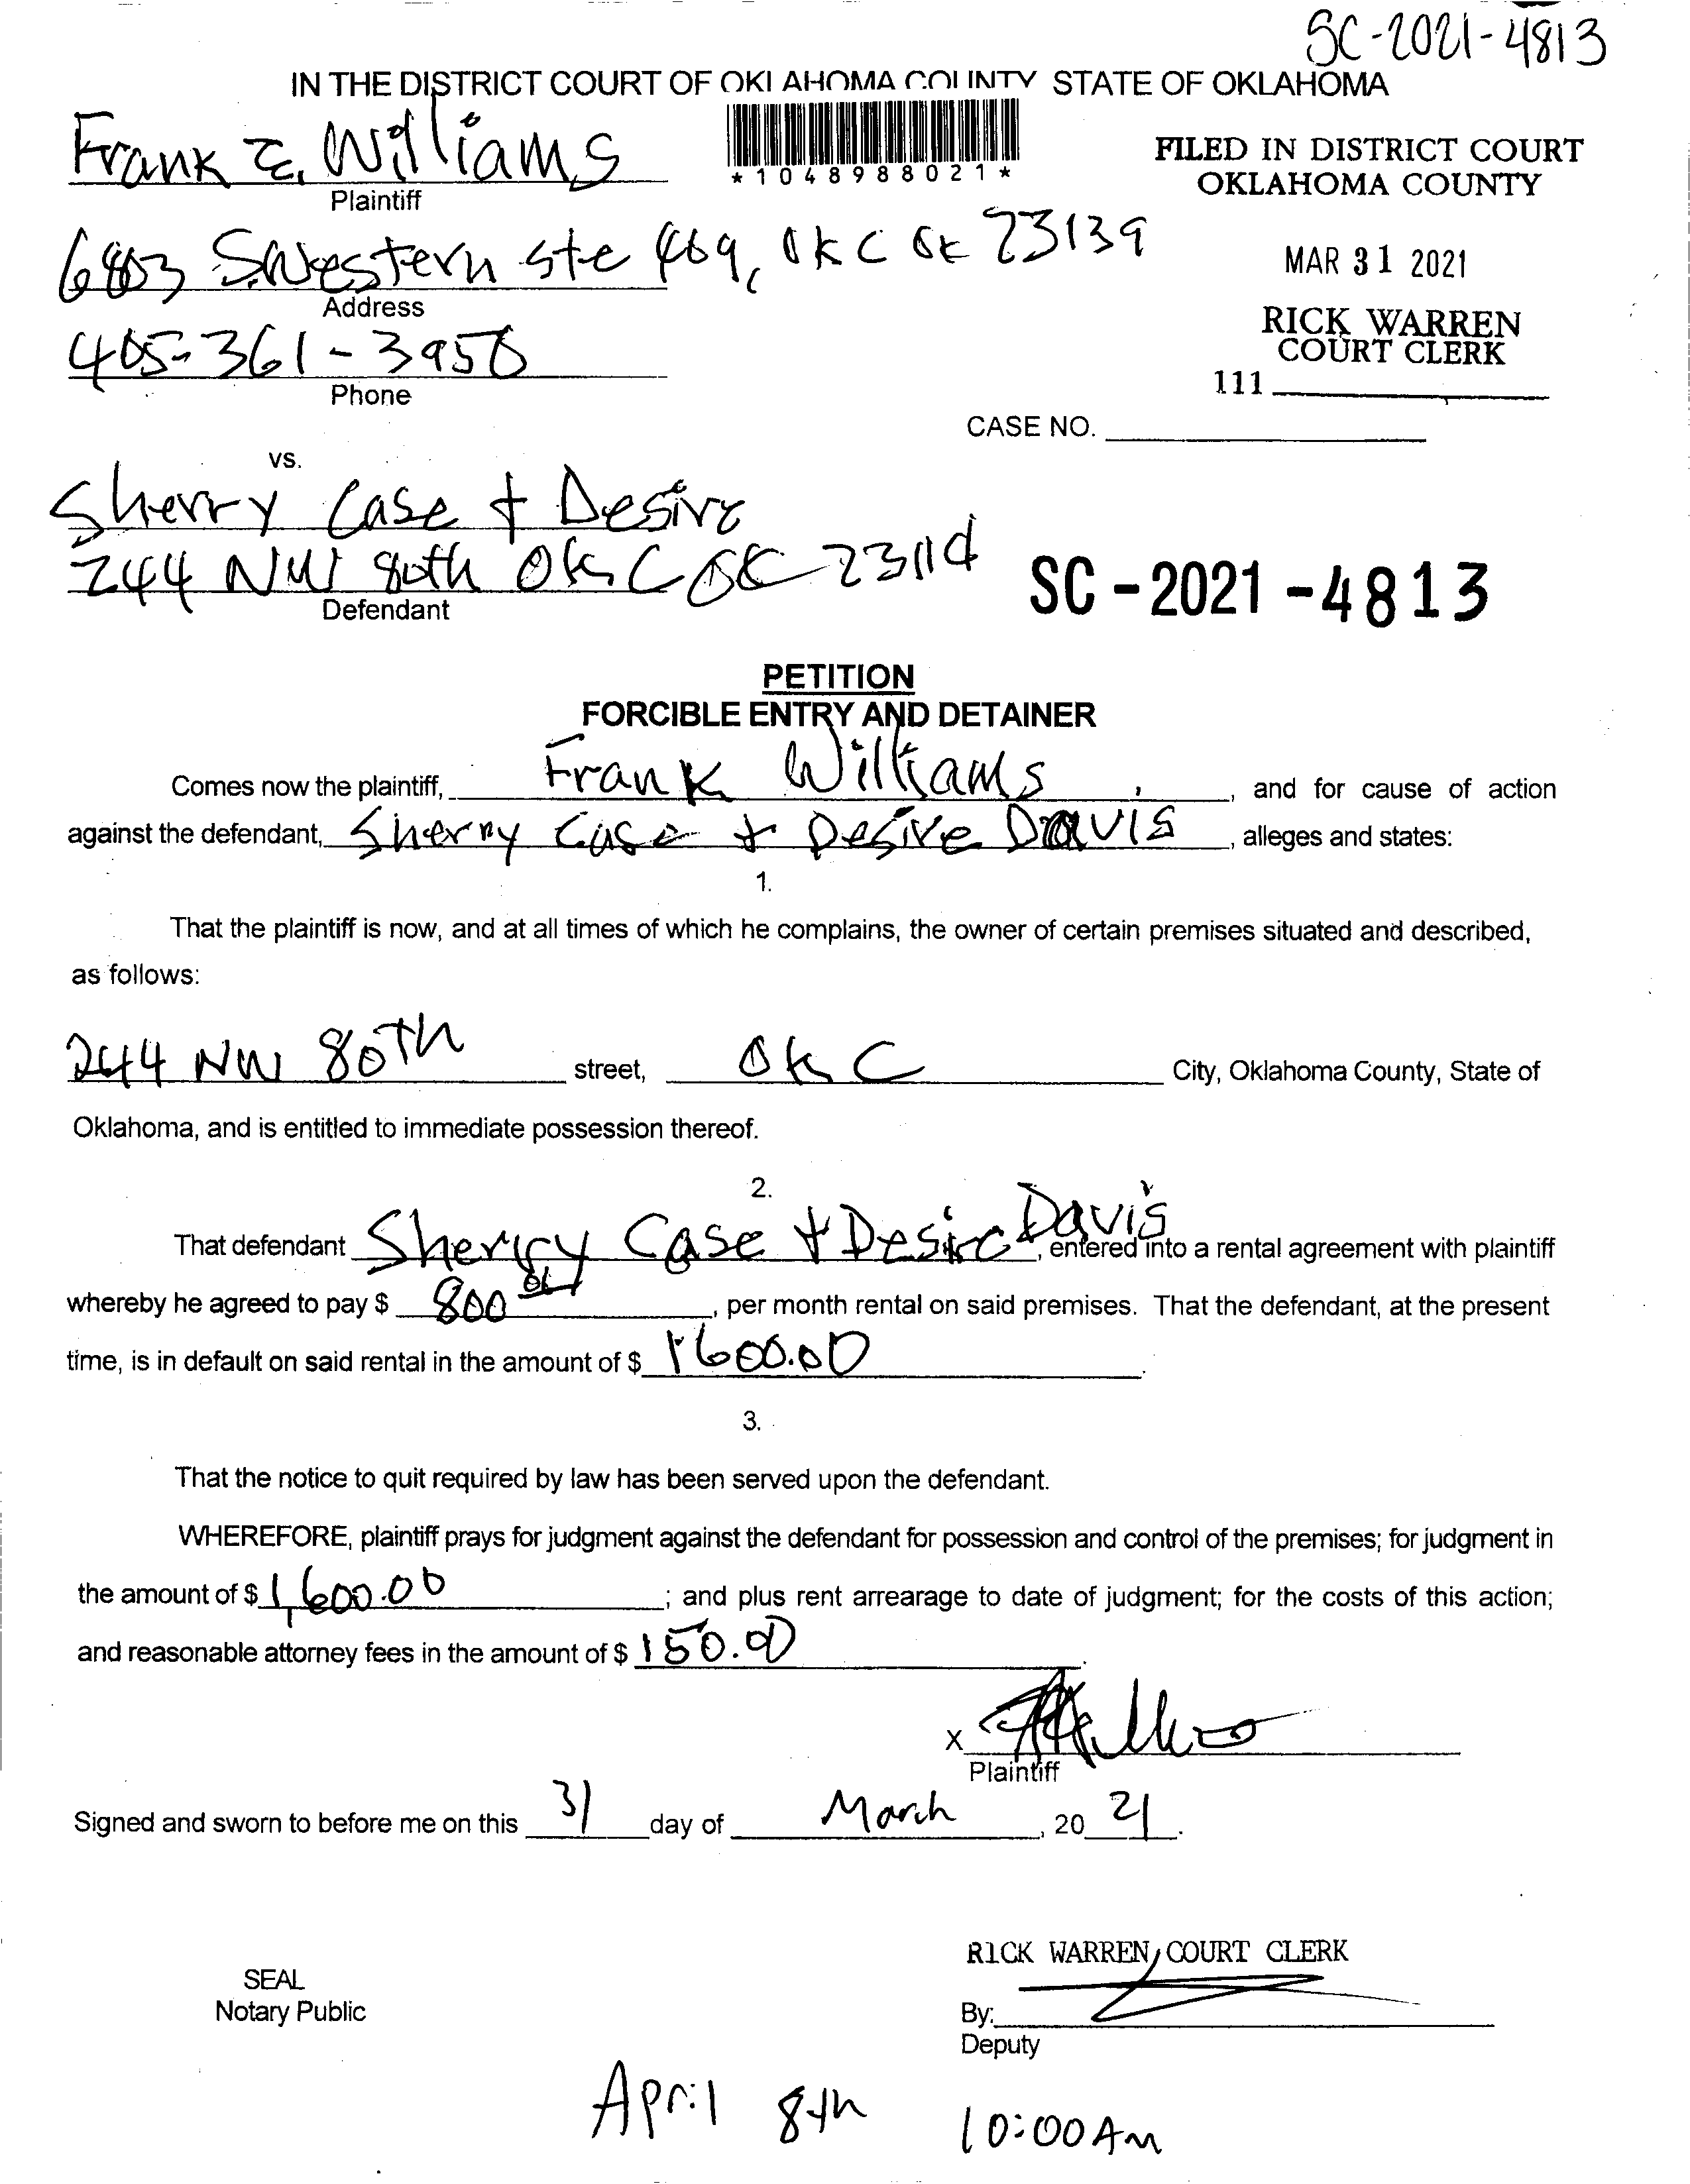 SC-2021-4813
IN THE DISTRICT COURT OF OKLAHOMA COUNTY STATE OF OKLAHOMA
Frank E. Williams
Plaintiff
*1048988021*
FILED IN DISTRICT COURT
OKLAHOMA COUNTY
6803 S. Western ste 409, OKC OK 73139
Address
MAR 31 2021
405-361-3950
Phone
RICK WARREN
COURT CLERK
111
CASE NO.
vs.
Sherry Case + Desire
244 NW 80th OKC OK 73114
Defendant
SC-2021-4813
PETITION
FORCIBLE ENTRY AND DETAINER
Comes now the plaintiff, Frank Williams, and for cause of action
against the defendant, Sherry Case + Desire Davis, alleges and states:
1.
That the plaintiff is now, and at all times of which he complains, the owner of certain premises situated and described,
as follows:
244 NW 80TH street, OKC City, Oklahoma County, State of
Oklahoma, and is entitled to immediate possession thereof.
2.
That defendant Sherry Case + Desire Davis, entered into a rental agreement with plaintiff
whereby he agreed to pay $ 800, per month rental on said premises. That the defendant, at the present
time, is in default on said rental in the amount of $ 1600.00.
3.
That the notice to quit required by law has been served upon the defendant.
WHEREFORE, plaintiff prays for judgment against the defendant for possession and control of the premises; for judgment in
the amount of $ 1,600.00; and plus rent arrearage to date of judgment; for the costs of this action;
and reasonable attorney fees in the amount of $ 150.00.
X
Plaintiff
Signed and sworn to before me on this 31 day of March, 20 21.
RICK WARREN, COURT CLERK
SEAL
Notary Public
By:
Deputy
April 8th 10:00 AM